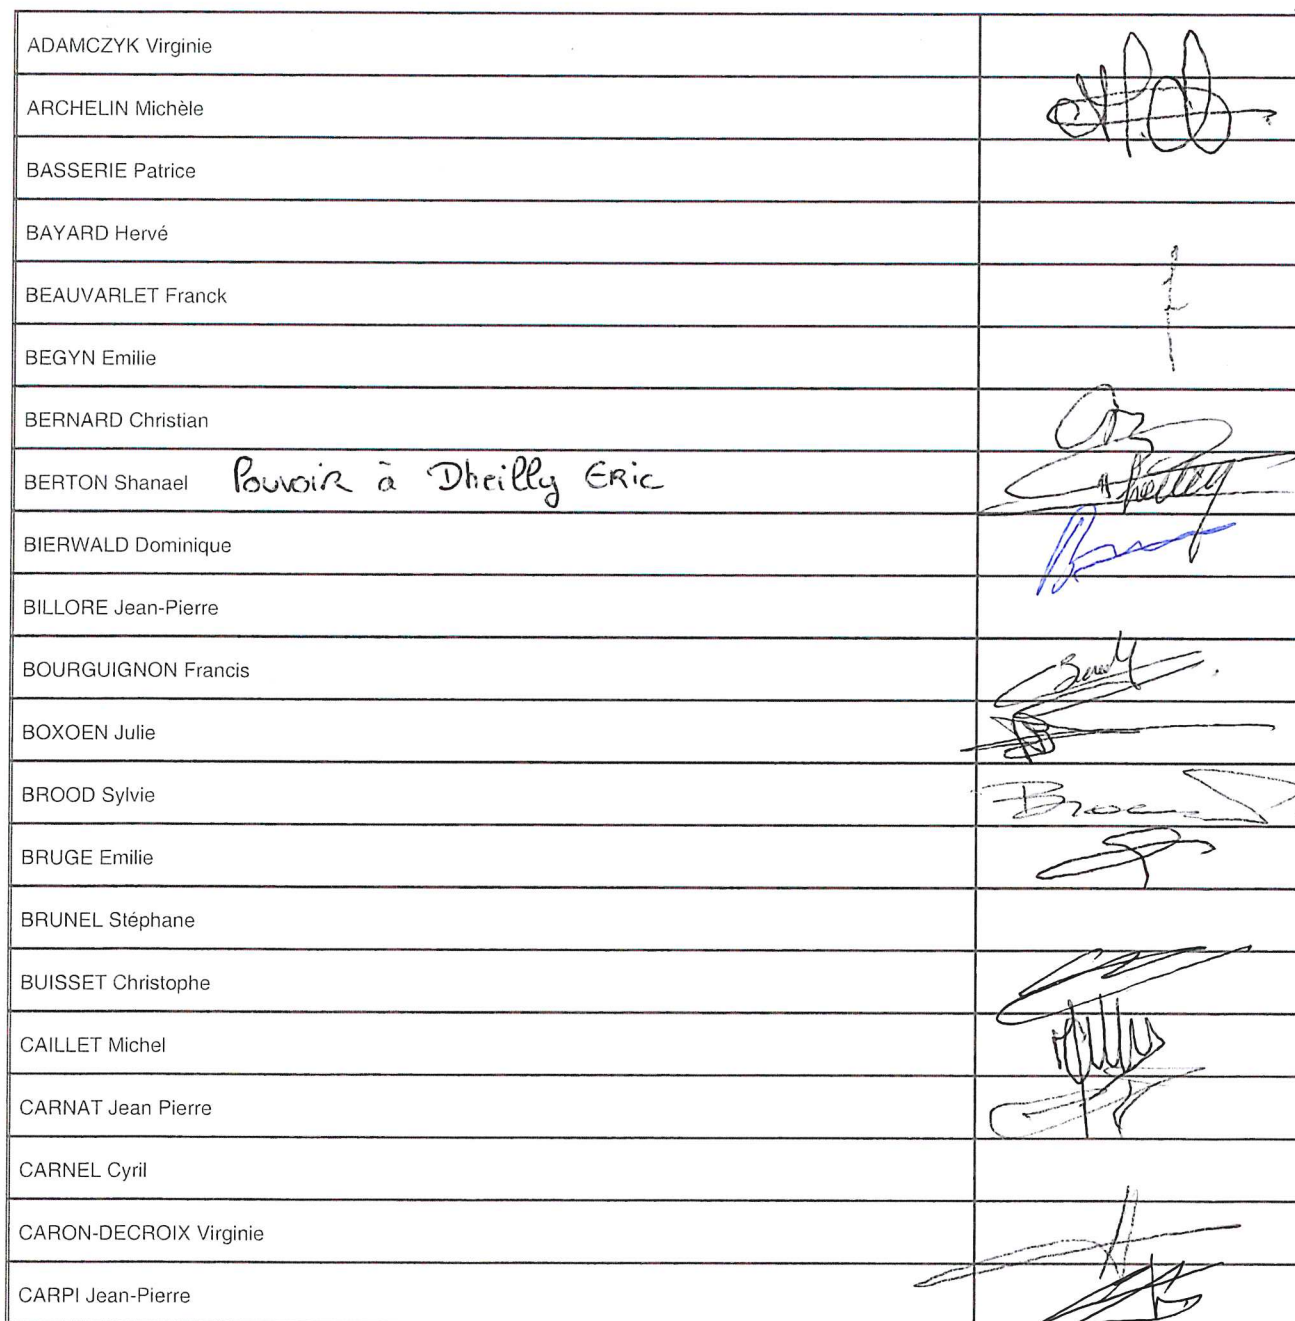 ADAMCZYK Virginie
ARCHELIN Michèle
BASSERIE Patrice
BAYARD Hervé
BEAUVARLET Franck
BEGYN Emilie
BERNARD Christian
BERTON Shanael Pouvoir à Dheilly ERic
BIERWALD Dominique
BILLORE Jean-Pierre
BOURGUIGNON Francis
BOXOEN Julie
BROOD Sylvie
BRUGE Emilie
BRUNEL Stéphane
BUISSET Christophe
CAILLET Michel
CARNAT Jean Pierre
CARNEL Cyril
CARON-DECROIX Virginie
CARPI Jean-Pierre